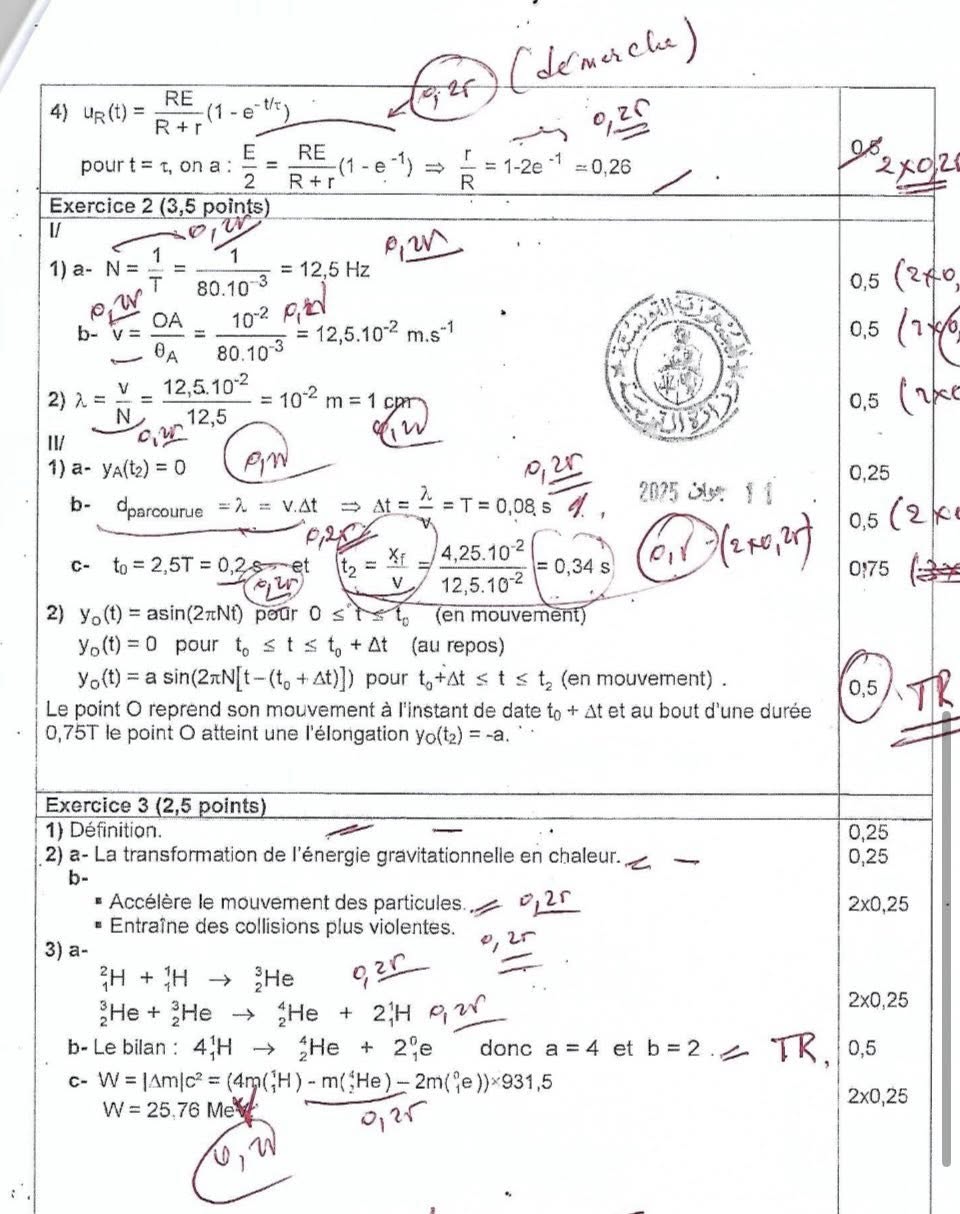 (démarche)
0,25
4) u_R(t) = RE/(R + r) (1 - e^(-t/τ))
0,25
pour t = τ, on a : E/2 = RE/(R + r) (1 - e^(-1)) ⇒ r/R = 1-2e^(-1) ≃ 0,26
0,5 2x0,25
Exercice 2 (3,5 points)
I/
0,25
0,25
1) a- N = 1/T = 1/(80.10^(-3)) = 12,5 Hz
0,5 (2x0,
0,25 0,25
b- v = OA/θ_A = 10^(-2)/(80.10^(-3)) = 12,5.10^(-2) m.s^(-1)
0,5 (2x0,
2) λ = v/N = 12,5.10^(-2)/12,5 = 10^(-2) m = 1 cm
0,5 (2x0
0,25 0,25
II/
1) a- y_A(t₂) = 0
0,25
0,25
0,25
11 جوان 2025
b- d_parcourue = λ = v.Δt ⇒ Δt = λ/v = T = 0,08 s
0,5 (2x
0,25
c- t₀ = 2,5T = 0,2 s et t₂ = x_f/v = 4,25.10^(-2)/(12,5.10^(-2)) = 0,34 s
0,5 (2x0,25)
0,75
0,25
2) y_o(t) = asin(2πNt) pour 0 ≤ t ≤ t₀ (en mouvement)
y_o(t) = 0 pour t₀ ≤ t ≤ t₀ + Δt (au repos)
y_o(t) = a sin(2πN[t−(t₀ + Δt)]) pour t₀+Δt ≤ t ≤ t₂ (en mouvement) .
0,5 TR
Le point O reprend son mouvement à l'instant de date t₀ + Δt et au bout d'une durée
0,75T le point O atteint une l'élongation y_O(t₂) = -a.
Exercice 3 (2,5 points)
1) Définition.
0,25
2) a- La transformation de l'énergie gravitationnelle en chaleur.
0,25
b-
▪ Accélère le mouvement des particules. 0,25
2x0,25
▪ Entraîne des collisions plus violentes.
0,25
3) a-
²₁H + ¹₁H → ³₂He 0,25
³₂He + ³₂He → ⁴₂He + 2¹₁H 0,25
2x0,25
b- Le bilan : 4¹₁H → ⁴₂He + 2⁰₁e donc a = 4 et b = 2 . TR
0,5
c- W = |Δm|c² = (4m(¹₁H) - m(⁴₂He) – 2m(⁰₁e))×931,5
2x0,25
W = 25,76 MeV
0,25
0,25